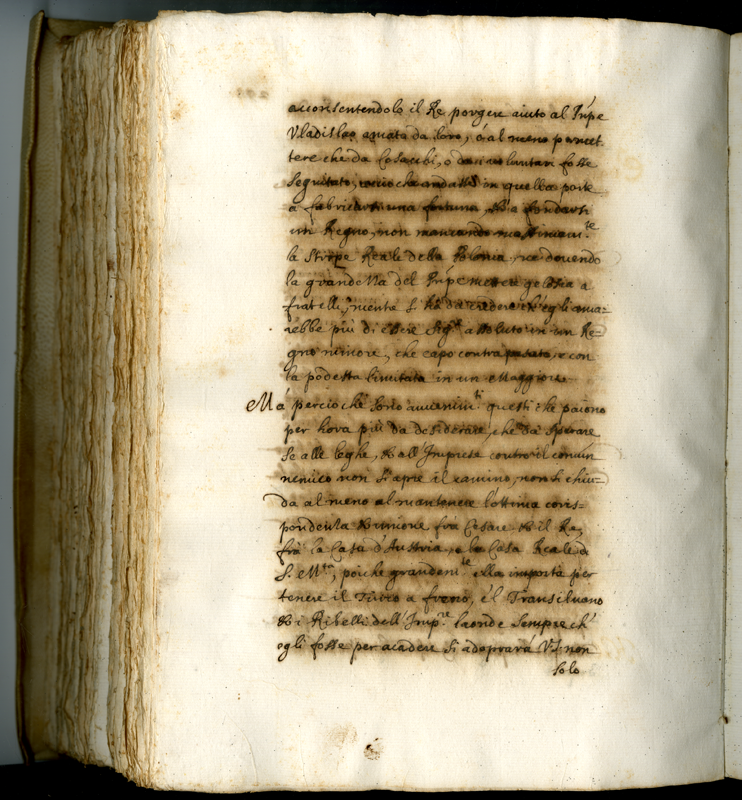 acconsentendolo il Re porgere aiuto al Inpe
Vladislao amata da loro, ò al meno permet-
tere che da Cosacchi, o da i voluntari fosse
seguitato, acciò che andasse in quella parte
a fabricarsi una fortuna, et a fondarsi
un Regno, non mancando massimam.te
la Stirpe Reale della Polonia, ne dovendo
la grandezza del Inpe mettere gelosia a
fratelli, mentre s' hà da credere ch' egli ama-
rebbe più di essere Sig.re assoluto in un Re-
gno minore, che capo contrapesato, e con
la podestà limitata in un Maggiore
Mà perciò che sono avvenim.ti questi che paiono
per hora più da desiderare, che da sperare
se alle leghe, et all' Impresa contro il comun
nemico non si apre il camino, non si chiu-
da al meno al mantenere l'ottima coris-
pondenza et unione frà Cesare et il Re,
frà la Casa d'Austria, e la Casa Reale di
S. M.tà, poiche grandem.te ella importa per
tenere il Turco a freno, e'l Transilvano
et i Ribelli dell' Imp.re laonde sempre ch'
egli fosse per accadere si adoprarà V.S. non
solo